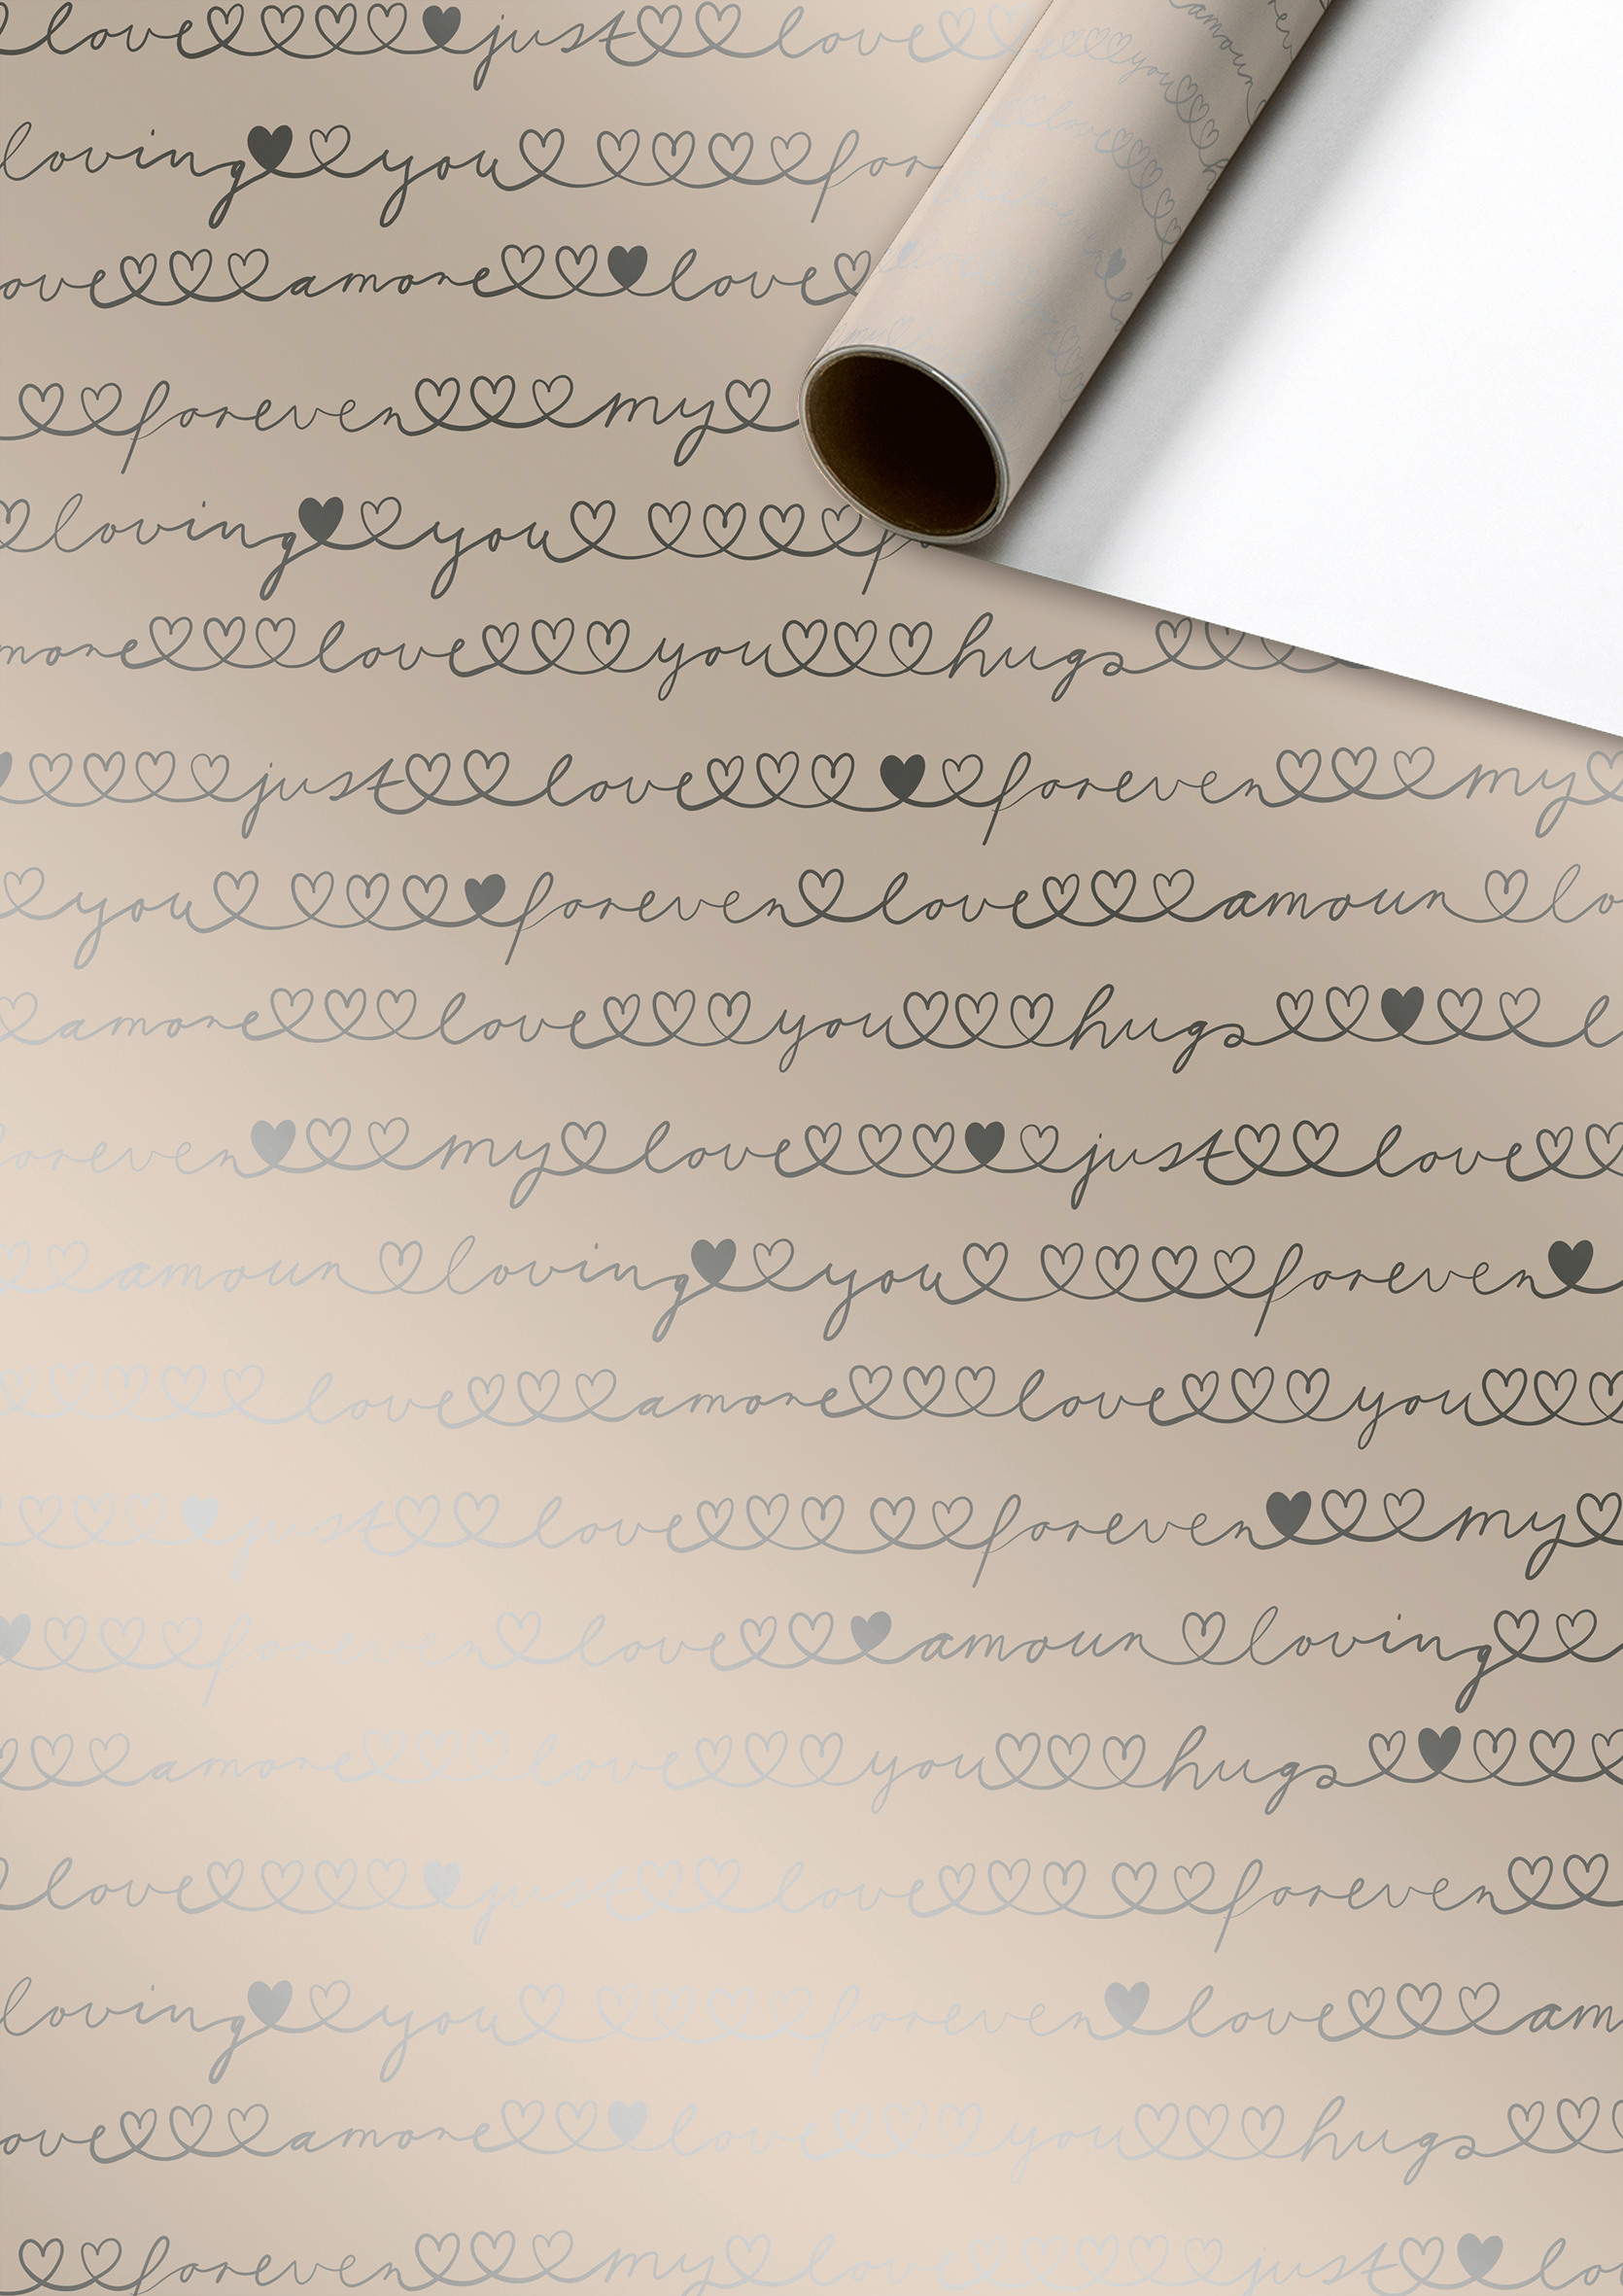 love just love
loving you for
ove amore love
forever my
loving you f
more love you hugs
just love forever my
you forever love amour lo
amore love you hugs l
forever my love just love
amour loving you forever
love amore love you
just love forever my
forever love amour loving
amore love you hugs
love just love forever
loving you forever love am
ove amore love you hugs
forever my love just lo